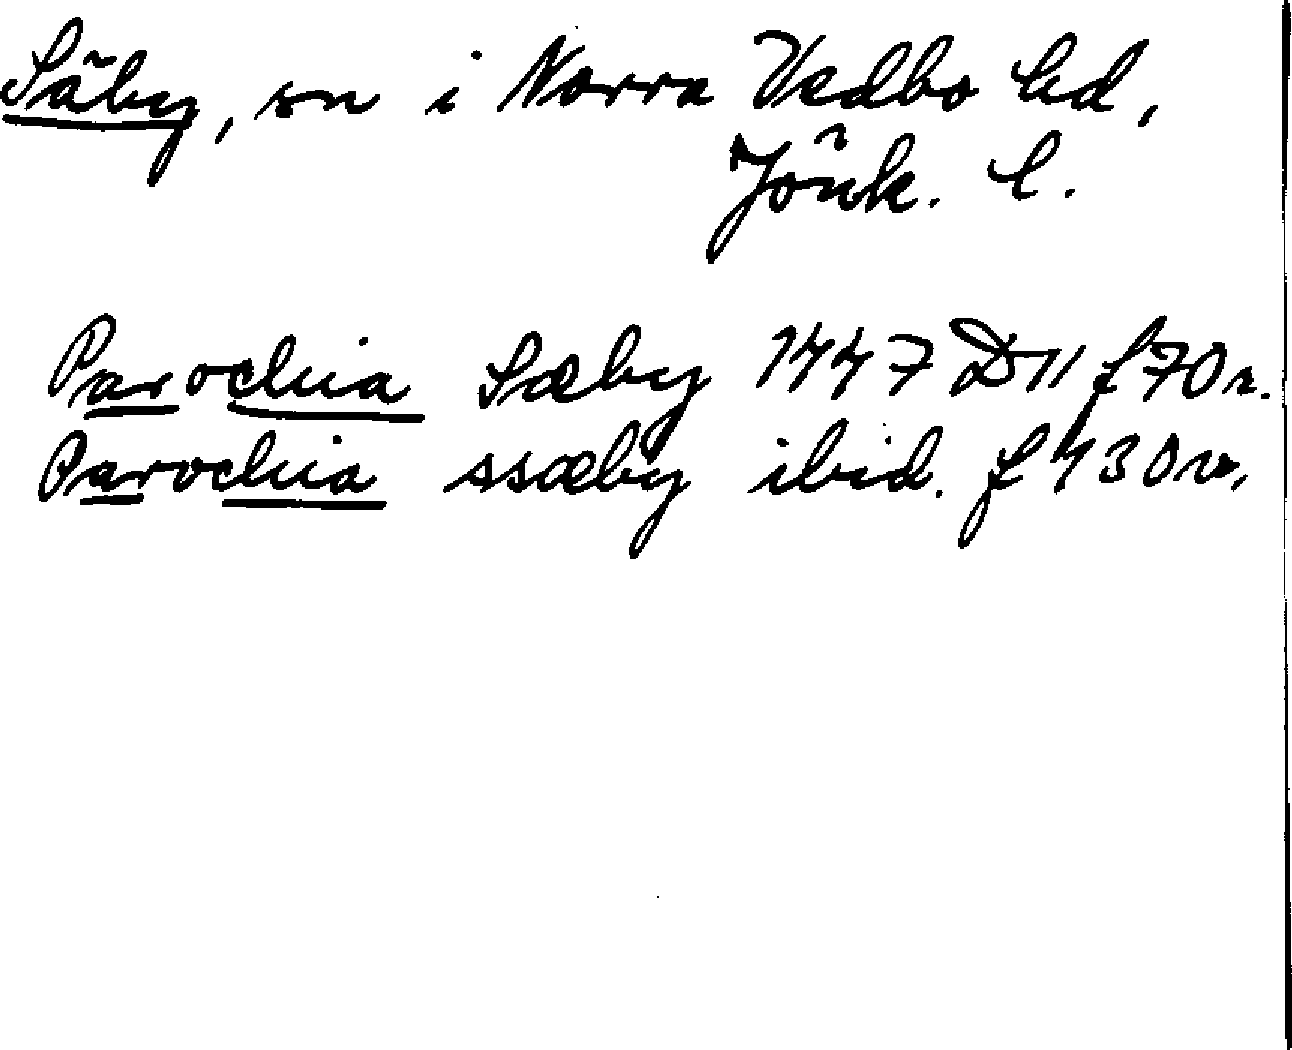 Säby, sn i Norra Vedbo hd,
Jönk. l.
Parochia Sæby 1447 D 11 f 70 r.
Parochia ssæby ibid. f 130 v.